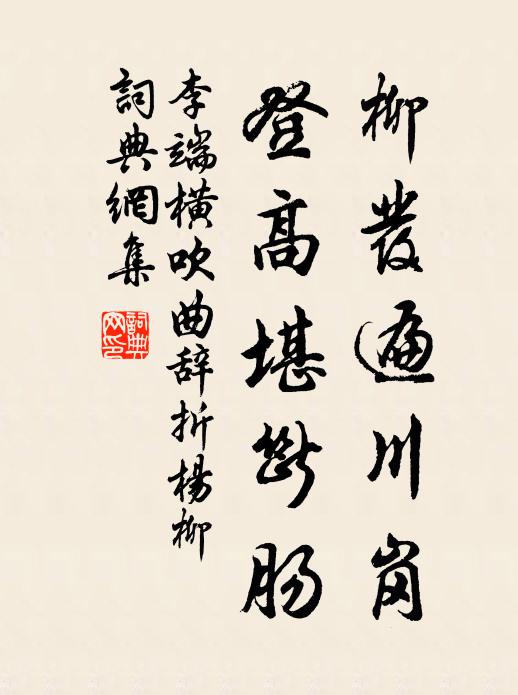 柳發遍川岗
登高堪断肠
李端橫吹曲辞折楊柳
詞典網集
詞典网印